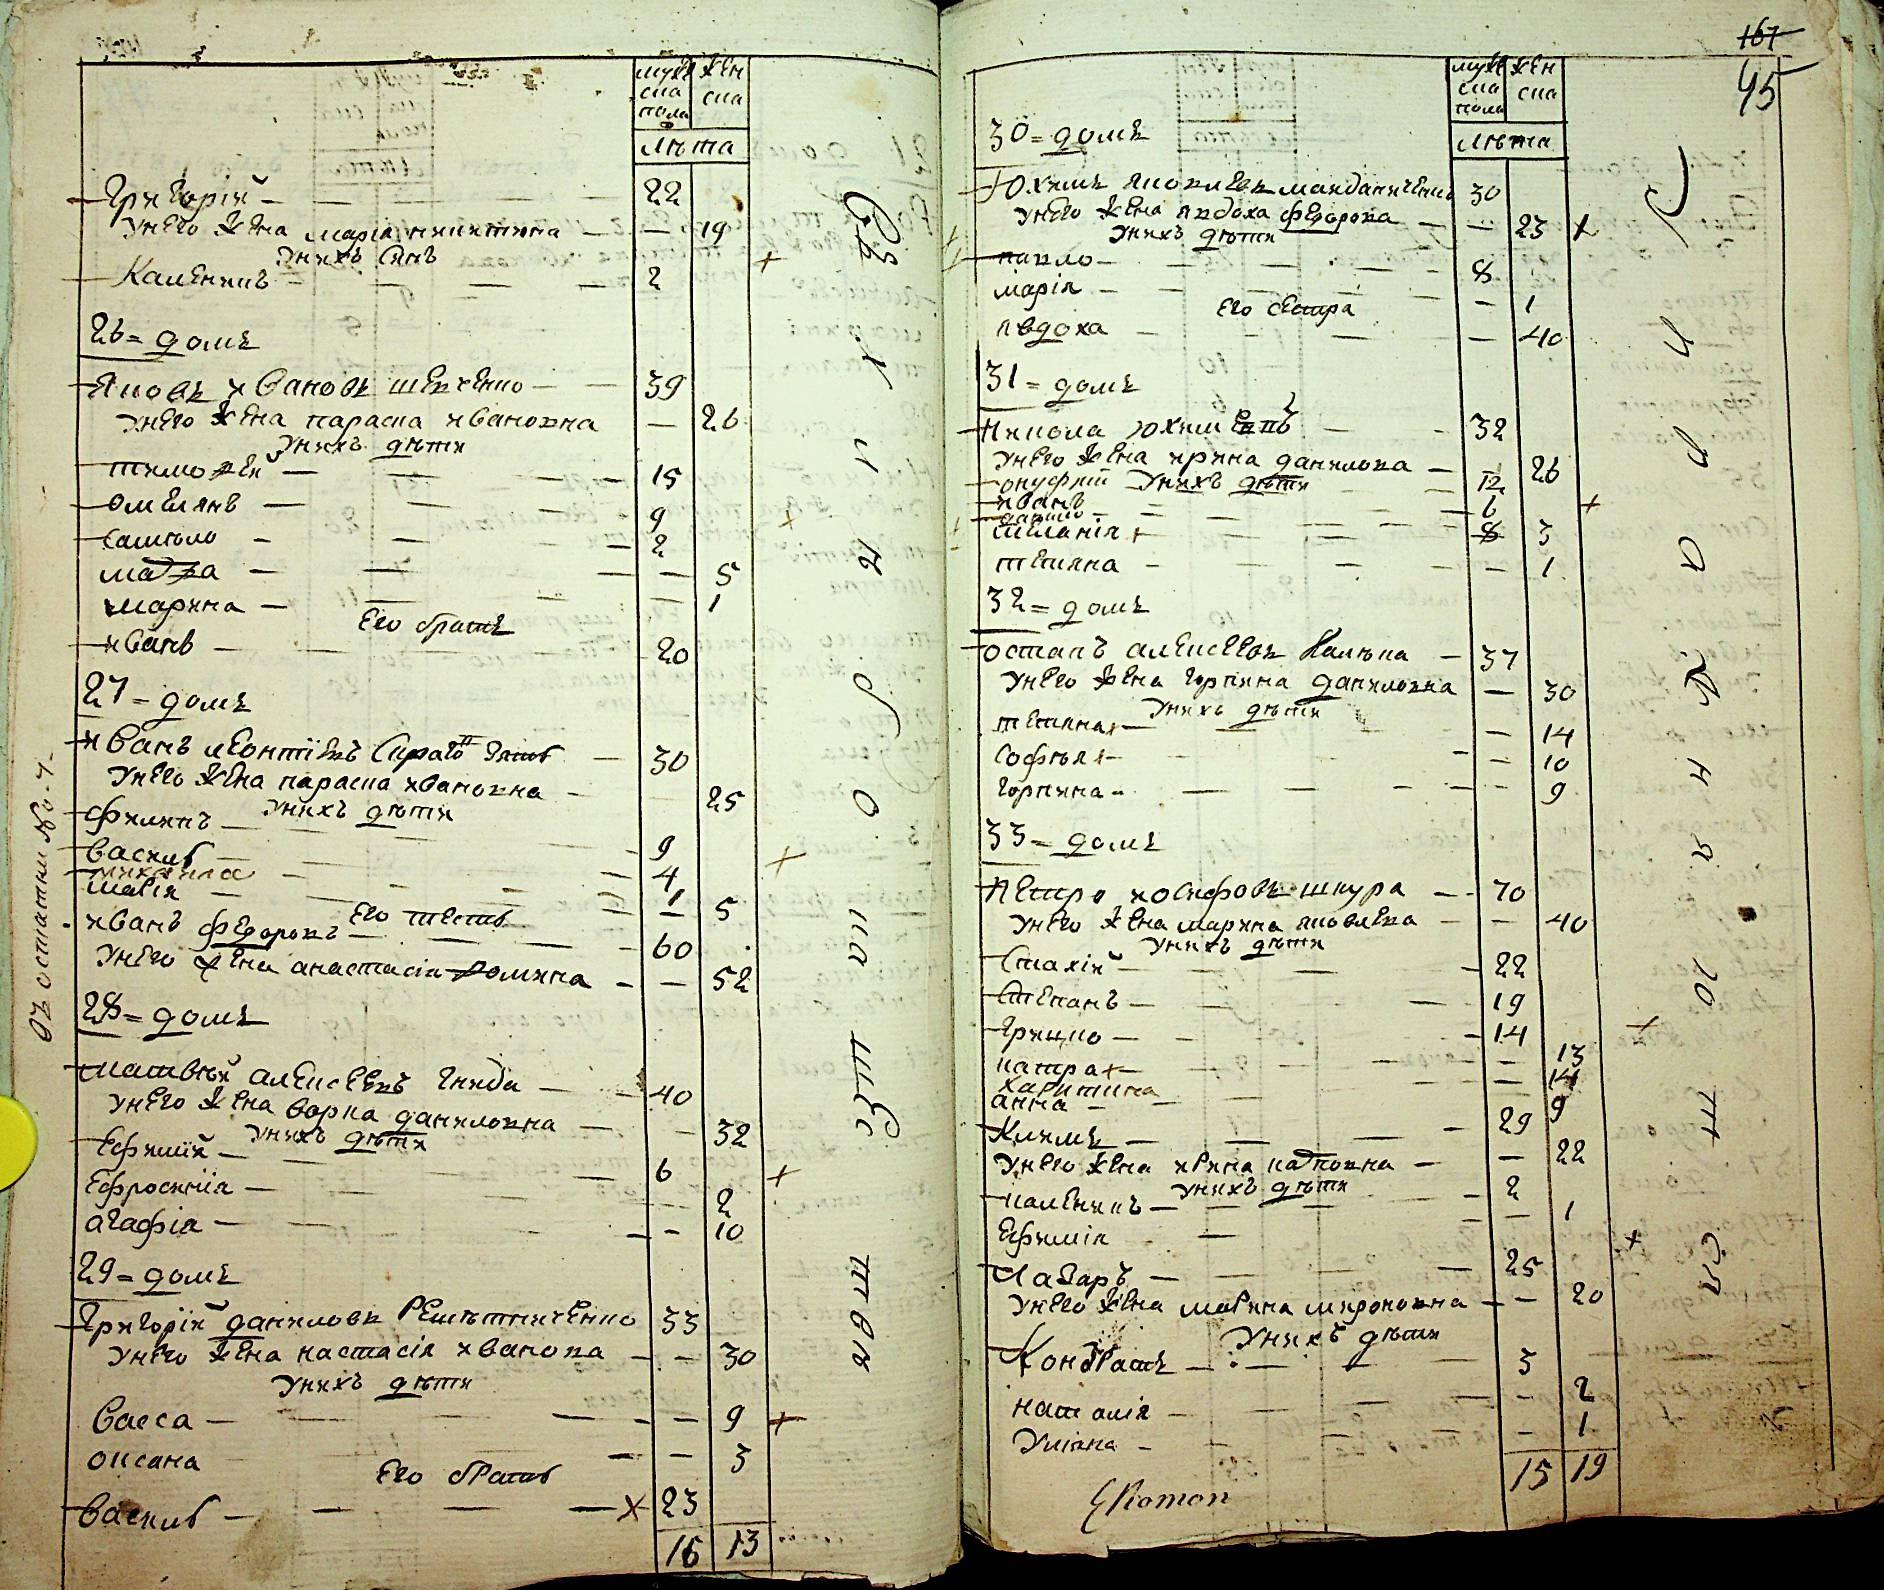 муже
ска
пола
жен
ска
лѣта
Григорій 22
У него жена марія никитина 19
У нихъ сынъ
Каленикъ 2
26 = домъ
Яковъ ивановъ шевченко 39
У него жена параска ивановна 26
У нихъ дѣти
тимофей 15
омелянъ 9
самойло 2
мотра 5
марина 1
Его братъ
иванъ 20
27 = домъ
иванъ леонтіевъ 30
У него жена параска ивановна 25
У нихъ дѣти
филипъ 9
василь 4
михайла 1
марія 5
Его тесть
иванъ федоровъ 60
У него жена анастасія фомина 52
28 = домъ
матвѣй алексеевъ гнида 40
У него жена варка даниловна 32
У нихъ дѣти
Ефимій 6
Ефросинія 2
агафія 10
29 = домъ
Григорій даниловъ Решетниченко 33
У него жена настасія иванова 30
У нихъ дѣти
васса 9
оксана 3
Его братъ
василь 23
16 13
167
45
муже
ска
пола
жен
ска
лѣта
30 = домъ
Юхимъ яковлевъ майданиченко 30
У него жена явдоха федорова 23
У нихъ дѣти
павло 8
марія 1
Его сестра
явдоха 40
31 = домъ
Никола юхимевъ 32
У него жена ирина данилова 26
У нихъ дѣти
онуфрій 12
иванъ 6
данило 8
меланія 3
тетяна 1
32 = домъ
остапъ алексеевъ Калѣка 37
У него жена горпина даниловна 30
У нихъ дѣти
тетяна 14
софья 10
горпина 9
33 = домъ
Петро иосифовъ шкура 70
У него жена марина яковлева 40
У нихъ дѣти
Стахій 22
степанъ 19
грицко 14
катра 13
харитина 14
анна 9
Климъ 29
У него жена ирина карповна 22
У нихъ дѣти
каленикъ 2
Ефимія 1
Лазаръ 25
У него жена марина мироновна 20
У нихъ дѣти
Кондратъ 3
наталія 2
Уліяна 1
15 19